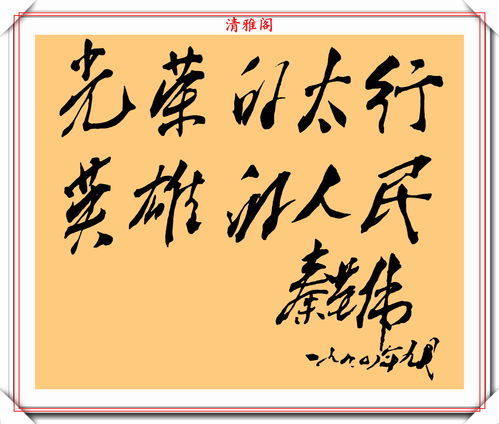 清雅阁
光荣的太行
英雄的人民
秦基伟
一九九〇年九月